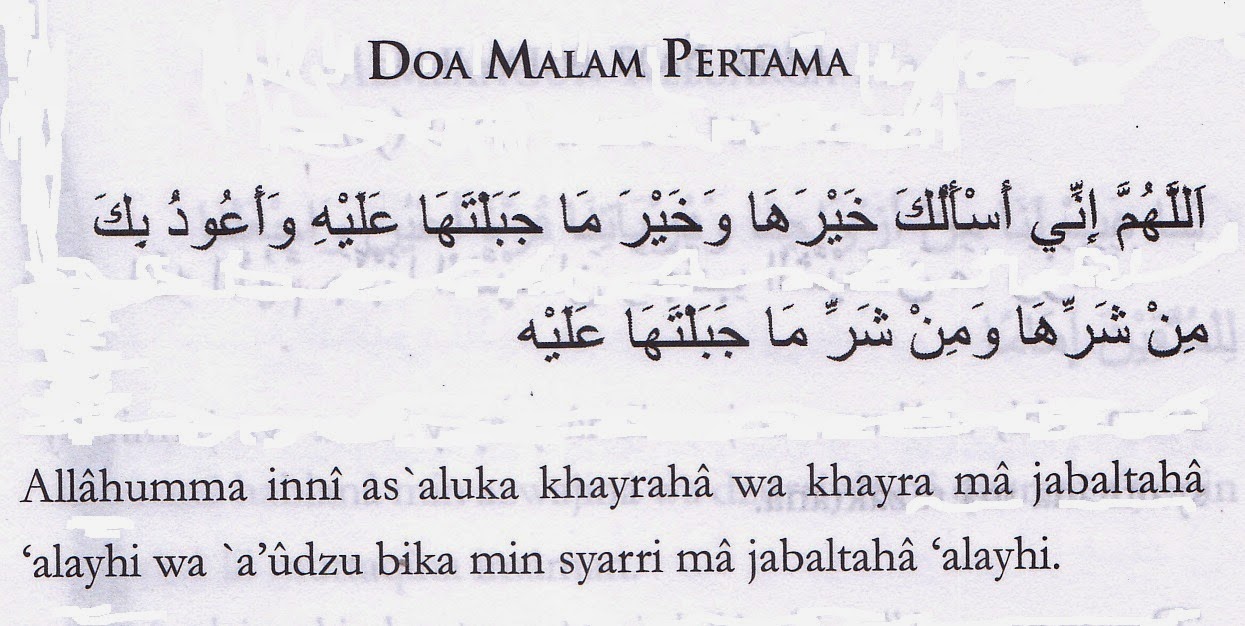 DOA MALAM PERTAMA
اَللَّهُمَّ إِنِّي أَسْأَلُكَ خَيْرَهَا وَخَيْرَ مَا جَبَلْتَهَا عَلَيْهِ وَأَعُوذُ بِكَ
مِنْ شَرِّهَا وَمِنْ شَرِّ مَا جَبَلْتَهَا عَلَيْه
Allâhumma innî as`aluka khayrahâ wa khayra mâ jabaltahâ
‘alayhi wa `a’ûdzu bika min syarri mâ jabaltahâ ‘alayhi.